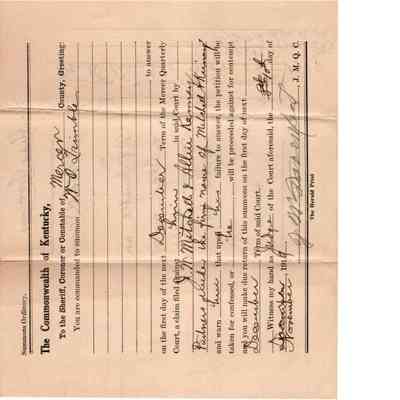 Summons Ordinary.
The Commonwealth of Kentucky,
To the Sheriff, Coroner or Constable of Mercer County, Greeting:
You are commanded to summon W S
to answer
on the first day of the next December Term of the Mercer Quarterly
Court, a claim filed against him in said Court by
J W Mitchell & Allie Kenney
Partners under the firm name of Mitchell & Kenney
and warn him that upon his failure to answer, the petition will be
taken for confessed, or he will be proceeded against for contempt
and you will make due return of this summons on the first day of next
December Term of said Court.
Witness my hand as Judge of the Court aforesaid, the day of
November 191
J. M. Q. C.
The Herald Print